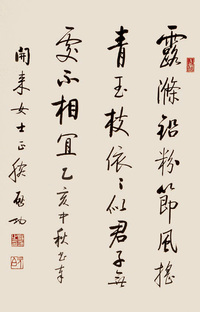 露滌鉛粉節風搖
青玉枝依〻似君子無
處不相宜乙亥中秋書奉
開來女士正腕啟功